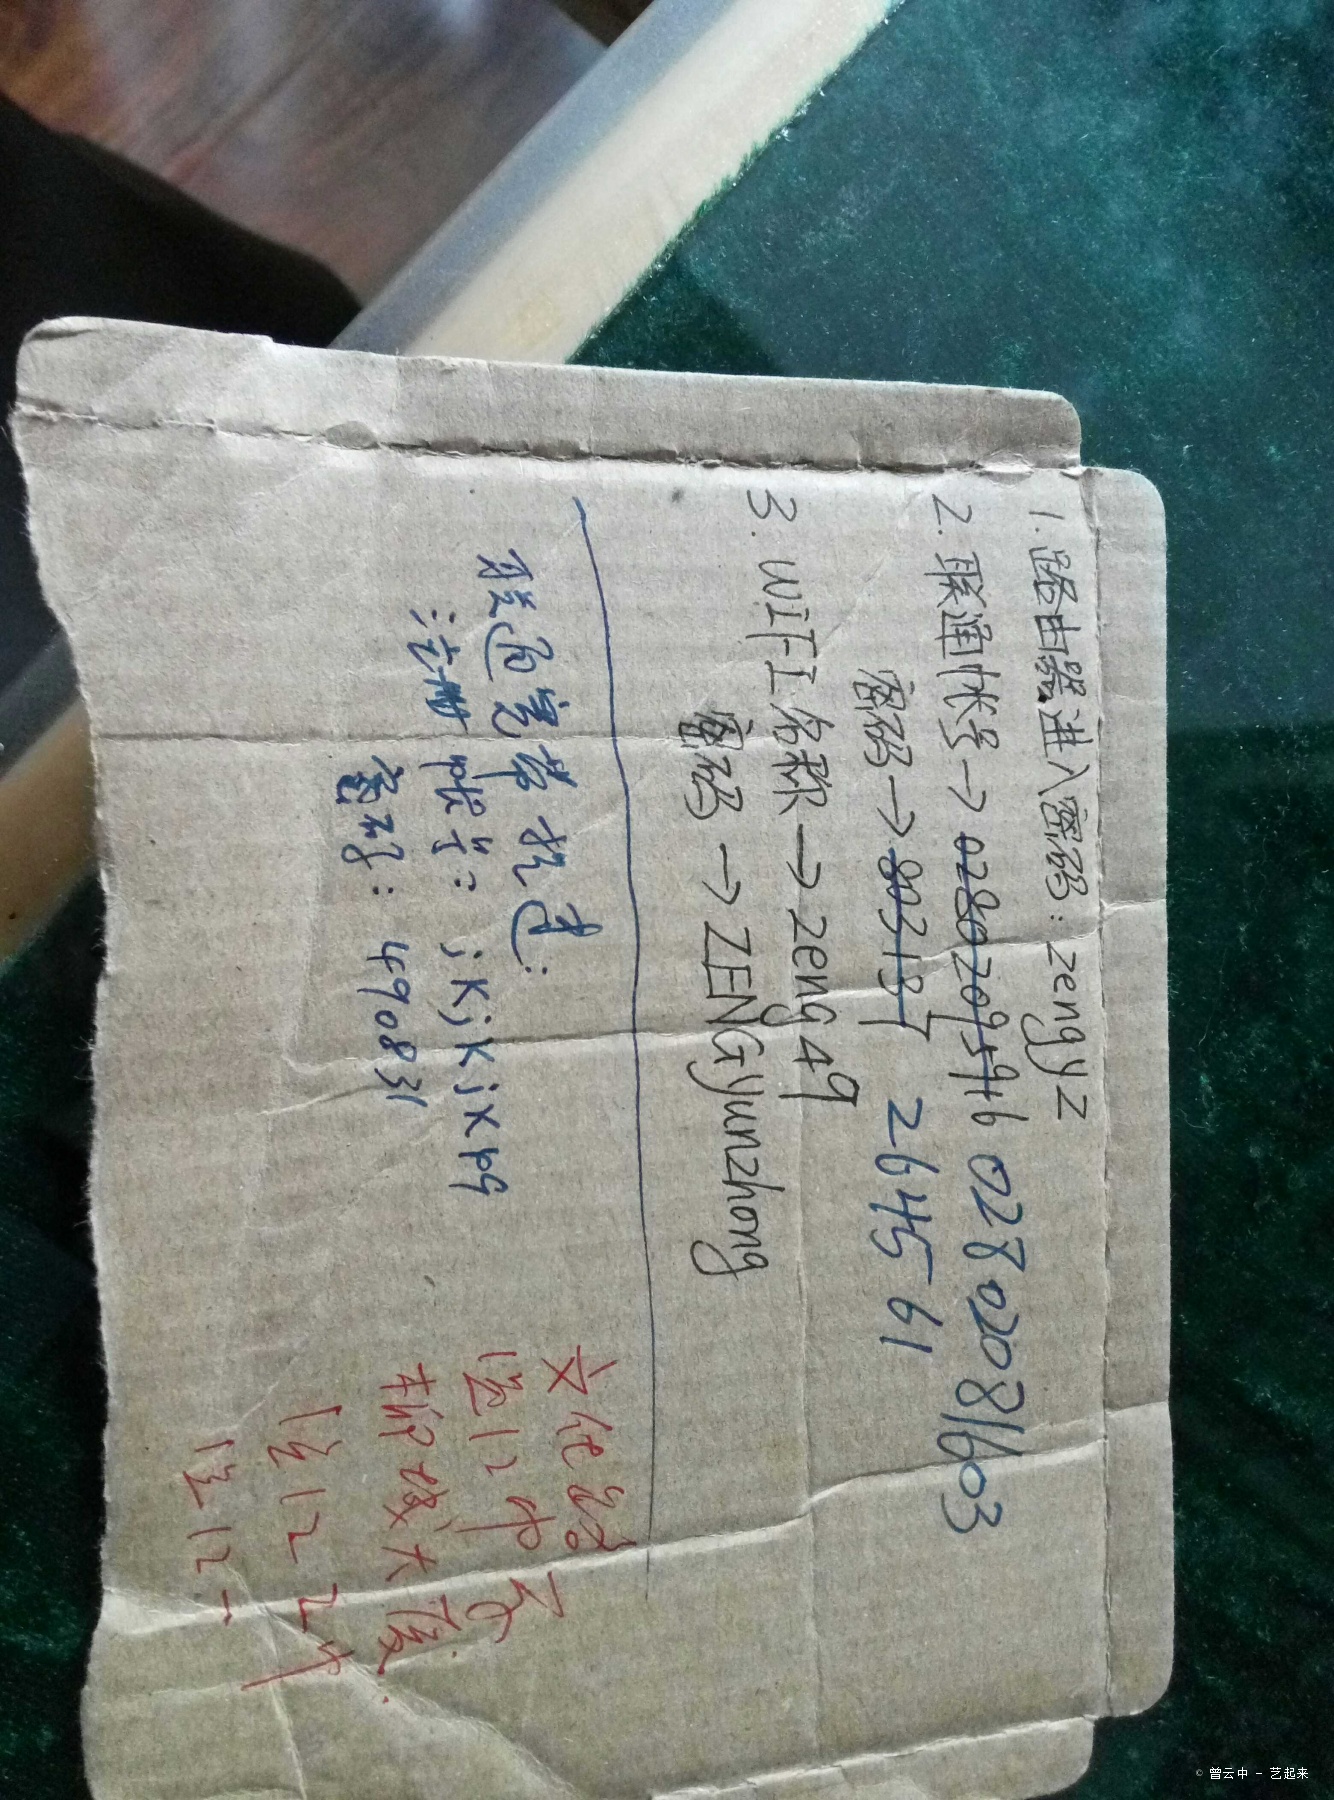 1.路由器进入密码:zengyz
2.联通帐号→02802089546 02802081603
密码→803187 264561
3.WiFi名称→zeng49
密码→ZENGyunzhong
联通宽带提速:
注册帐号:jKjKjxp9
密码:490831
文化路
新城大厦
© 曾云中 - 艺起来